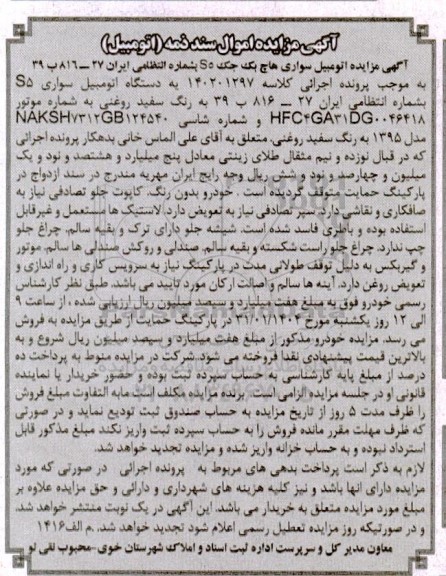 آگهی مزایده اموال سند ذمه (اتومبیل)
آگهی مزایده اتومبیل سواری هاچ بک جک S5 بشماره انتظامی ایران ۲۷ ــ ۸۱۶ ب ۳۹
به موجب پرونده اجرائی کلاسه ۱۴۰۲۰۱۲۹۷ یه دستگاه اتومبیل سواری S۵
بشماره انتظامی ایران ۲۷ ــ ۸۱۶ ب ۳۹ به رنگ سفید روغنی به شماره موتور
HFC۴GA۳۱DG۰۰۴۶۴۱۸ و شماره شاسی NAKSH۷۳۱۲GB۱۲۴۵۴۰
مدل ۱۳۹۵ به رنگ سفید روغنی، متعلق به آقای علی الماس خانی بدهکار پرونده اجرائی
که در قبال نوزده و نیم مثقال طلای زینتی معادل پنج میلیارد و هشتصد و نود و یک
میلیون و چهارصد و نود و شش ریال وجه رایج ایران مهریه مندرج در سند ازدواج در
پارکینگ حمایت متوقف گردیده است . خودرو بدون رنگ، کاپوت جلو تصادفی نیاز به
صافکاری و نقاشی دارد، سپر تصادفی نیاز به تعویض دارد، لاستیک ها مستعمل و غیرقابل
استفاده بوده و باطری فاسد شده است. شیشه جلو دارای ترک و بقیه سالم، چراغ جلو
چپ ندارد. چراغ جلو راست شکسته و بقیه سالم. صندلی و روکش صندلی ها سالم، موتور
و گیربکس به دلیل توقف طولانی مدت در پارکینگ نیاز به سرویس کاری و راه اندازی و
تعویض روغن دارد. آینه ها سالم و اصالت ارکان مورد تایید می باشد. طبق نظر کارشناس
رسمی خودرو فوق به مبلغ هفت میلیارد و سیصد میلیون ریال ارزیابی شده ، از ساعت ۹
الی ۱۲ روز یکشنبه مورخ ۳۱/۰۱/۱۴۰۴ در پارکینگ حمایت از طریق مزایده به فروش
می رسد. مزایده خودرو مذکور از مبلغ هفت میلیارد و سیصد میلیون ریال شروع و به
بالاترین قیمت پیشنهادی نقدا فروخته می شود. شرکت در مزایده منوط به پرداخت ده
درصد از مبلغ پایه کارشناسی به حساب سپرده ثبت بوده و حضور خریدار یا نماینده
قانونی او در جلسه مزایده الزامی است. برنده مزایده مکلف است مابه التفاوت مبلغ فروش
را ظرف مدت ۵ روز از تاریخ مزایده به حساب صندوق ثبت تودیع نماید و در صورتی
که ظرف مهلت مقرر مانده فروش را به حساب سپرده ثبت واریز نکند مبلغ مذکور قابل
استرداد نبوده و به حساب خزانه واریز شده و مزایده تجدید خواهد شد.
لازم به ذکر است پرداخت بدهی های مربوط به پرونده اجرائی در صورتی که مورد
مزایده دارای آنها باشد و نیز کلیه هزینه های شهرداری و دارائی و حق مزایده علاوه بر
مبلغ مورد مزایده متعلق به خریدار می باشد. این آگهی در یک نوبت منتشر خواهد شد.
و در صورتیکه روز مزایده تعطیل رسمی اعلام شود تجدید خواهد شد. .م الف ۱۴۱۶
معاون مدیر کل و سرپرست اداره ثبت اسناد و املاک شهرستان خوی-محبوب نقی لو